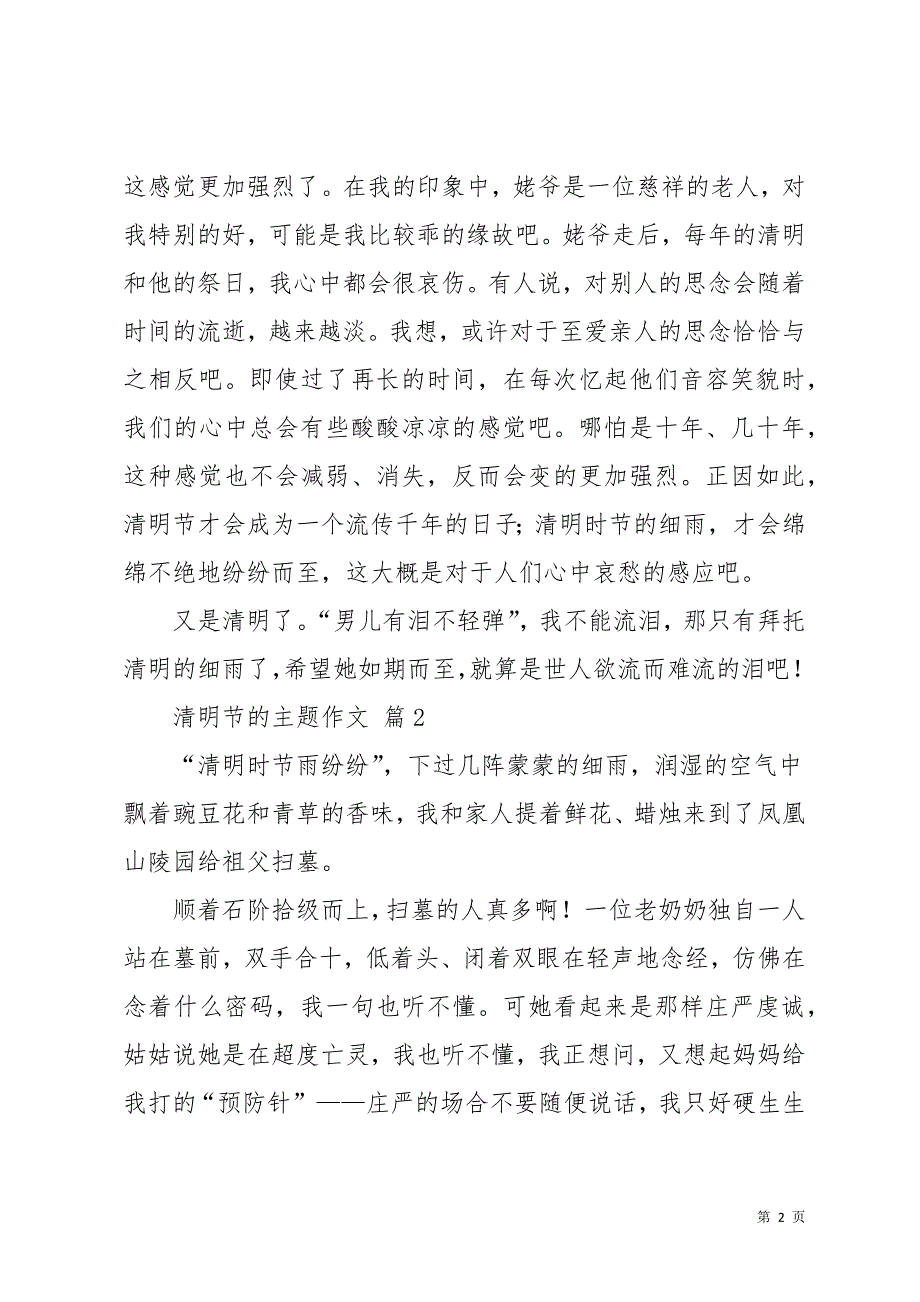 这感觉更加强烈了。在我的印象中，姥爷是一位慈祥的老人，对
我特别的好，可能是我比较乖的缘故吧。姥爷走后，每年的清明
和他的祭日，我心中都会很哀伤。有人说，对别人的思念会随着
时间的流逝，越来越淡。我想，或许对于至爱亲人的思念恰恰与
之相反吧。即使过了再长的时间，在每次忆起他们音容笑貌时，
我们的心中总会有些酸酸凉凉的感觉吧。哪怕是十年、几十年，
这种感觉也不会减弱、消失，反而会变的更加强烈。正因如此，
清明节才会成为一个流传千年的日子；清明时节的细雨，才会绵
绵不绝地纷纷而至，这大概是对于人们心中哀愁的感应吧。
又是清明了。“男儿有泪不轻弹”，我不能流泪，那只有拜托
清明的细雨了，希望她如期而至，就算是世人欲流而难流的泪吧！
清明节的主题作文 篇2
“清明时节雨纷纷”，下过几阵蒙蒙的细雨，润湿的空气中
飘着豌豆花和青草的香味，我和家人提着鲜花、蜡烛来到了凤凰
山陵园给祖父扫墓。
顺着石阶拾级而上，扫墓的人真多啊！一位老奶奶独自一人
站在墓前，双手合十，低着头、闭着双眼在轻声地念经，仿佛在
念着什么密码，我一句也听不懂。可她看起来是那样庄严虔诚，
姑姑说她是在超度亡灵，我也听不懂，我正想问，又想起妈妈给
我打的“预防针”——庄严的场合不要随便说话，我只好硬生生
第 2 页